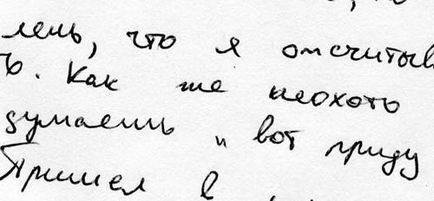 лень, что я отсчитыв
ь. Как же неохото
думаешь " вот приду
Пришел в